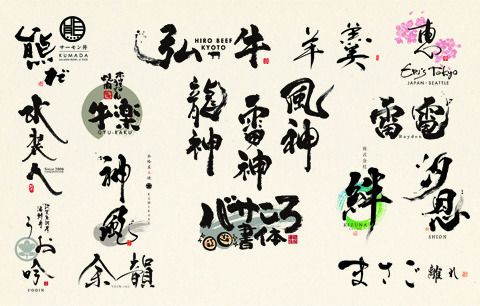 熊だ
サーモン丼
KUMADA
弘牛
HIRO BEEF
KYOTO
羊羹
恵
Emi's Tokyo
JAPAN・SEATTLE
牛楽
GYU-RAKU
龍神
雷神
風神
雷電
Rayden
水裝人
Since 2006
神風
株式会社
絆
KIZUNA
汐恩
SHION
バサころ
書体
うお吟
UOGIN
余韻
まさご
離れ